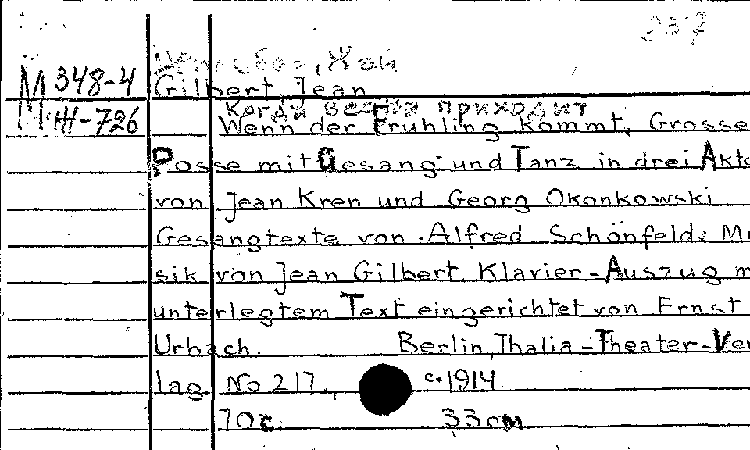 237
Жан
M 348-4 Gilbert, Jean
Когда весна приходит
Ж-726 Wenn der Frühling kommt, Grosse
Posse mit Gesang und Tanz in drei Akte
von Jean Kren und Georg Okonkowski
Gesangtexte von Alfred Schönfeld: Mu
sik von Jean Gilbert Klavier-Auszug m
unterlegtem Text eingerichtet von Ernst
Urbach. Berlin, Thalia-Theater-Ver
lag No 217. c. 1914
70c. 33cm